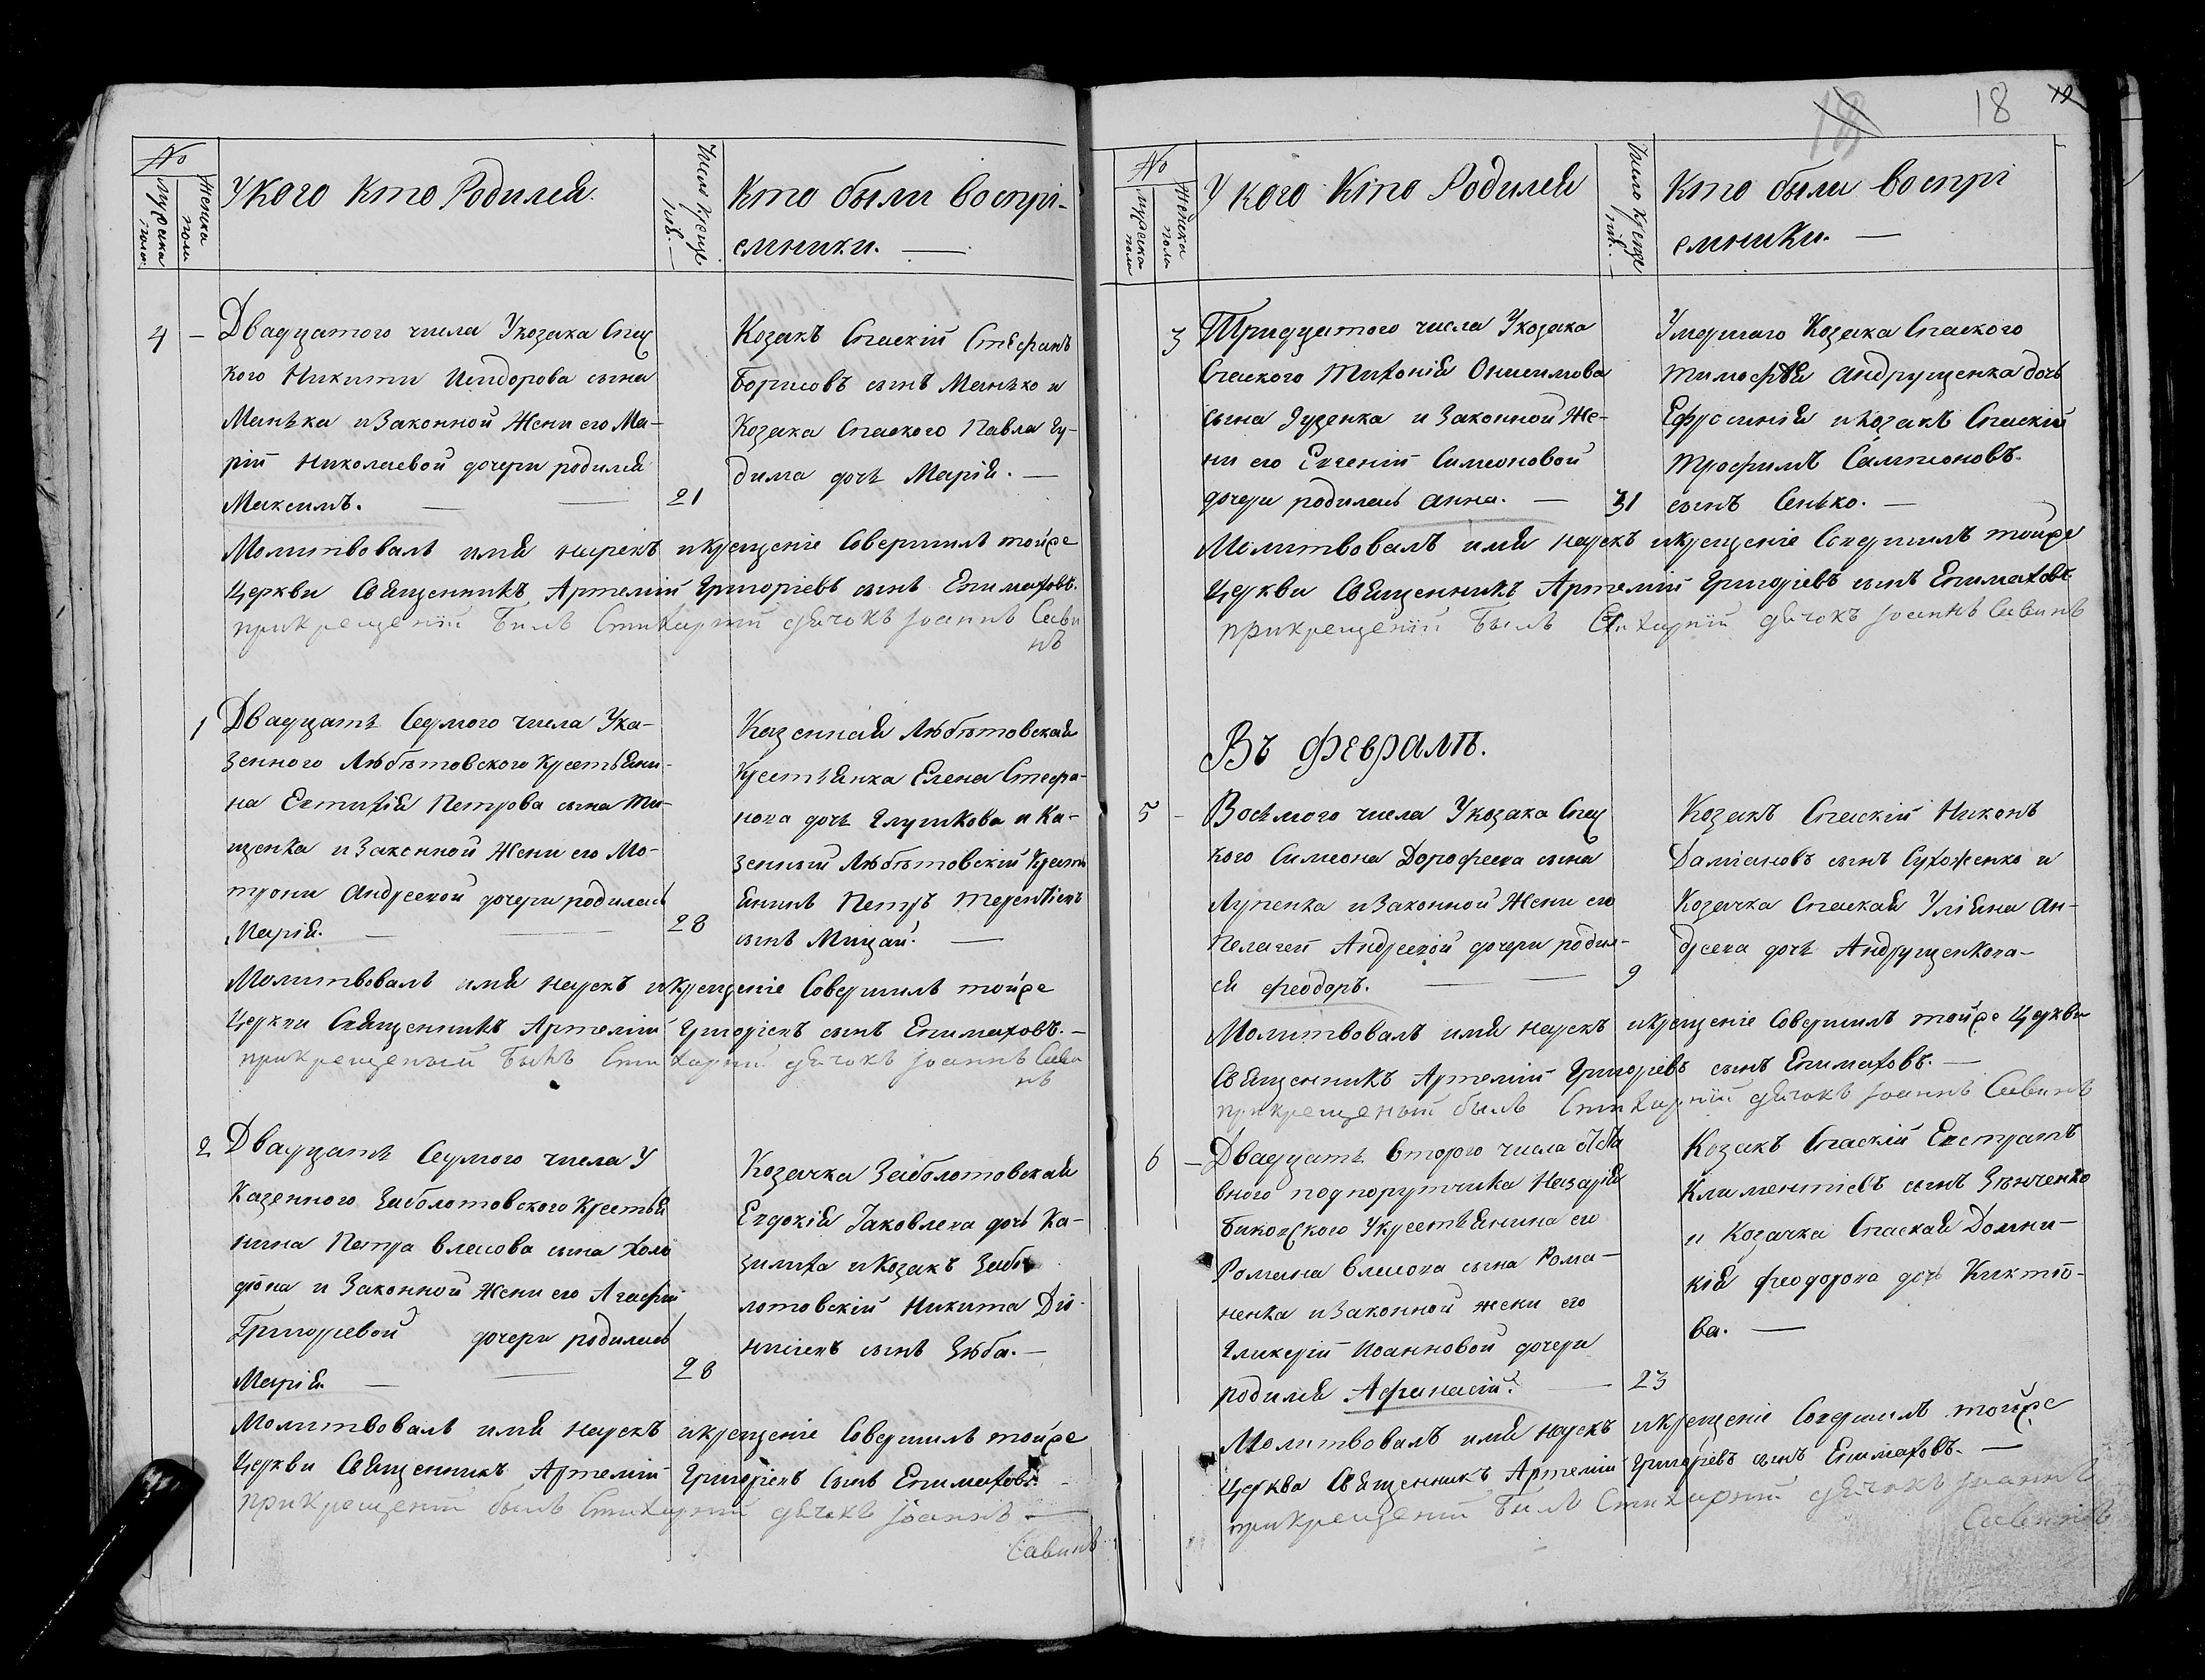 18 18 19
№
Мужеска пола
Женска пола
У кого кто Родился.
Число Креще
нія.
Кто были воспрі-
емники. —
4 — Двадцатого числа У козака Спас
кого Никити Исидорова сына
Манька и Законной Жени его Ма-
ріи Николаевой дочери родился
Максимъ. — — 21
Козакъ Спаскій Стефанъ
Борисовъ сынъ Манько и
Козака Спаского Павла Гу-
дима дочь Марія. —
Молитвовалъ имя нарекъ и крещеніе Совершилъ тойже
Церкви Священникъ Артемій Григоріевъ сынъ Епимаховъ.
при крещеніи Билъ Стихарній дячокъ Іоаннъ Сави
нъ
1 Двадцать Седмого числа У ка-
зенного Любѣтовского Крестьяни-
на Евтихія Петрова сына Ти-
щенка и Законной Жени его Мо-
трони Андреевой дочери родилась
Марія. — — 28
Казенная Любѣтовская
Крестьянка Елена Стефа-
нова дочь Глушкова и Ка-
зенный Любѣтовскій Крести
янинъ Петръ Терентіевъ
сынъ Мицай. —
Молитвовалъ имя нарекъ и крещеніе Совершилъ тойже
Церкви Священникъ Артемій Григоріевъ сынъ Епимаховъ. —
при крещеныи Былъ Сти харній дячокъ Іоаннъ Сави
нъ
2 Двадцать Седмого числа У
Казенного Заболотовского Крестья
нина Петра Власова сына Холо
дона и Законной Жени его Агафіи
Григоріевой дочери родилась
Марія. — — 28
Козачка Заболотовская
Евдокія Іаковлева дочь Ка-
зимиха и Козакъ Забо
лотовскій Никита Діо-
нисіевъ сынъ Зюба. —
Молитвовалъ имя нарекъ и крещеніе Совершилъ тойже
Церкви Священникъ Артемій Григоріевъ Сынъ Епимаховъ. —
при крещеніи былъ Стихарній дячокъ Іоаннъ —
Савинъ
№
Мужеска пола
Женска пола
У кого Кто Родился
Число Креще
нія. —
Кто были воспрі
емники. —
3 Тридцатого числа У козака
Спаского Тихонія Онисимова
сына Дуденка и Законной Же-
ни его Евгеніи Симеоновой
дочери родилась Анна. — 31
Умершаго Козака Спаского
Тимофѣя Андрущенка дочь
Ефросинія и козакъ Спаскій
Трофимъ Сампсоновъ
сынъ Сенько. —
Молитвовалъ имя нарекъ и крещеніе Совершилъ тойже
Церкви Священникъ Артемій Григоріевъ сынъ Епимаховъ
при крещеніи Былъ Стихарній дячокъ Іоаннъ Савинъ
Въ Февралѣ.
5 — Восьмого числа У козака Спас
кого Симеона Дорофеева сына
Лупенка и Законной Жени его
Пелагеи Андреевой дочери родил-
ся Феодоръ. — 9
Козакъ Спаскій Никонъ
Даміановъ сынъ Сухоженко и
Козачка Спаская Уліяна Ан-
дреева дочь Андрущенкова —
Молитвовалъ имя нарекъ и крещеніе Совершилъ тойже Церкви
Священникъ Артемій Григоріевъ сынъ Епимаховъ. —
при крещеныи былъ Стихарній дячокъ Іоаннъ Савинъ
6 — Двадцать Второго числа Отста
вного подпорутчика Назарія
Биковского У крестьянина его
Романа Власова сына Рома-
ненка и Законной жени его
Гликеріи Иоанновой дочери
родился Афанасій. — 23
Козакъ Спаскій Евстратъ
Климентіевъ сынъ Зѣнченко
и Козачка Спаская Домни-
кія Феодорова дочь Киктіо-
ва. —
Молитвовалъ имя нарекъ и крещеніе Совершилъ тойже
Церкви Священникъ Артемій Григоріевъ сынъ Епимаховъ. —
при крещеніи Билъ Стихарній дячокъ Іоаннъ
Савинъ